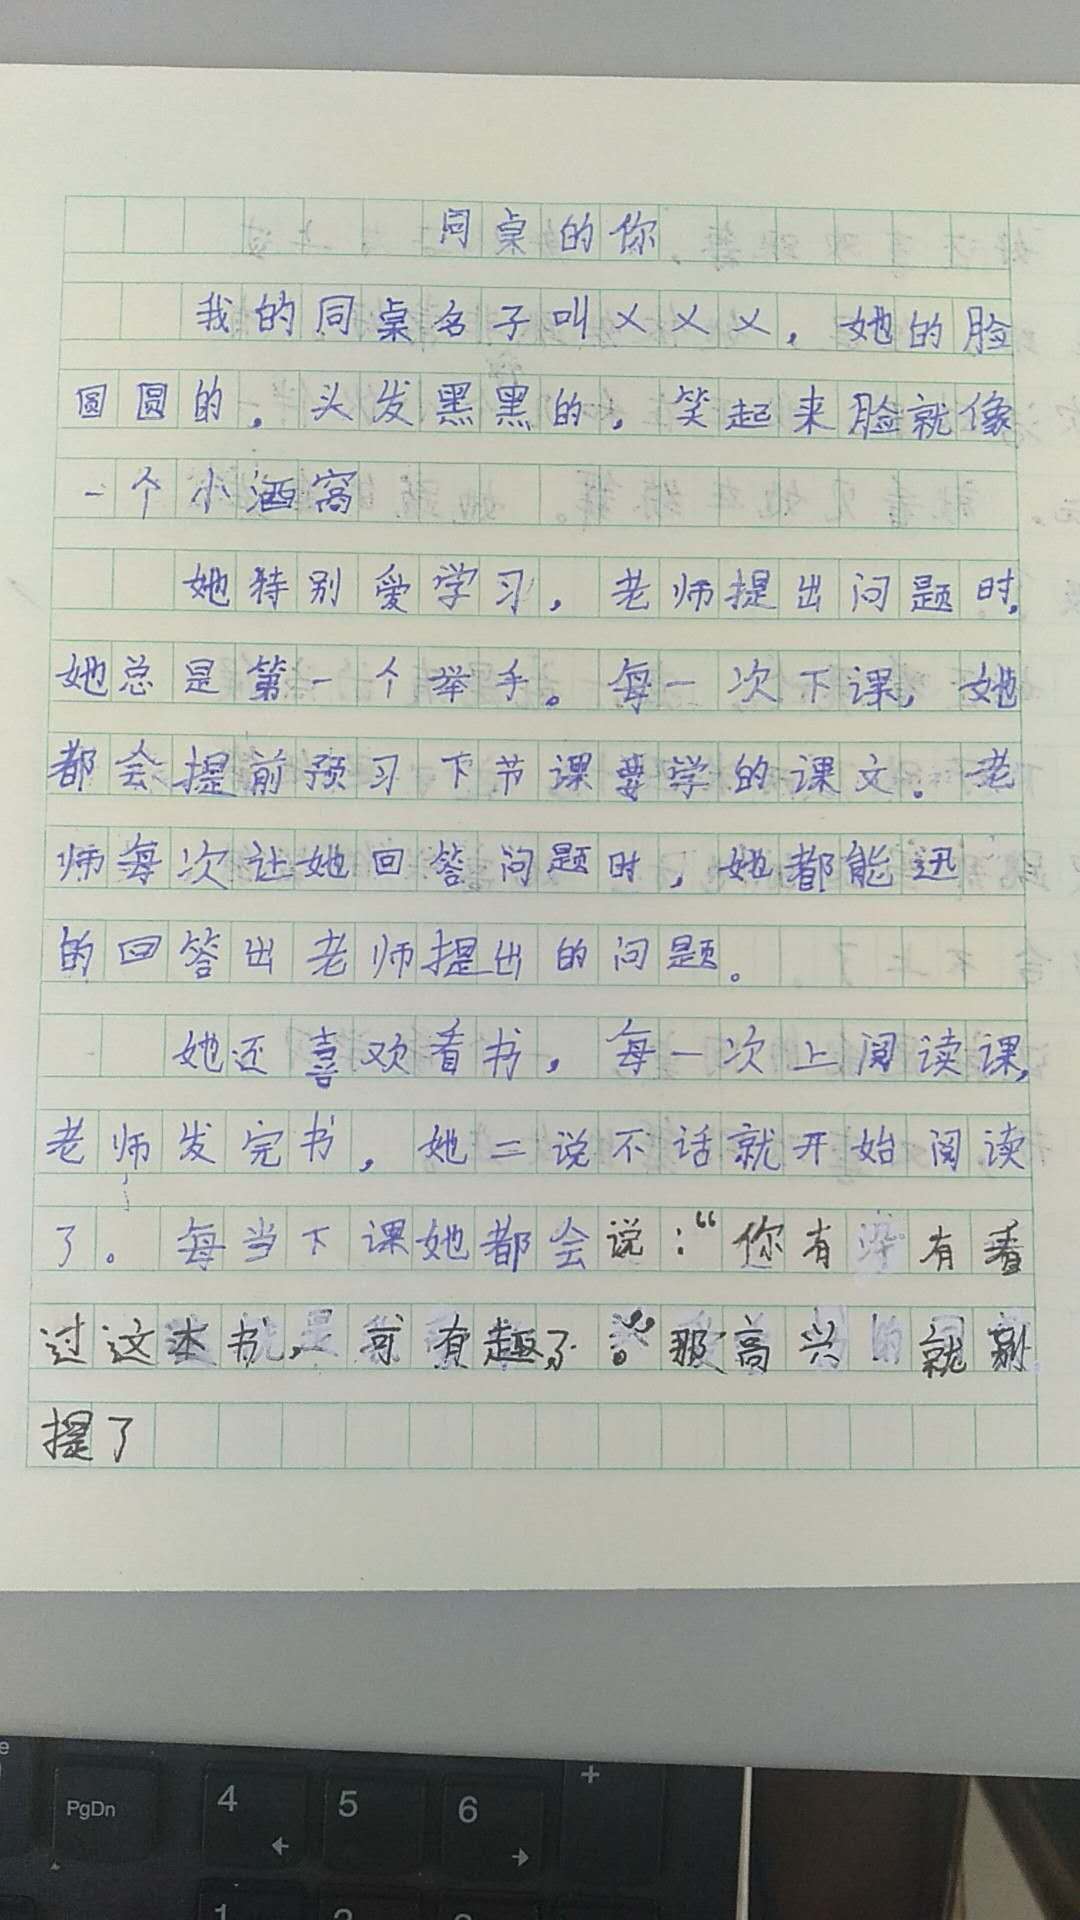 同桌的你
我的同桌名子叫乂乂乂，她的脸
圆圆的，头发黑黑的，笑起来脸就像
一个小酒窝
她特别爱学习，老师提出问题时，
她总是第一个举手。每一次下课，她
都会提前预习下节课要学的课文。老
师每次让她回答问题时，她都能迅
的回答出老师提出的问题。
她还喜欢看书，每一次上阅读课，
老师发完书，她二说不话就开始阅读
了。每当下课她都会说：“你有没有看
过这本书，可有趣了。”那高兴就别
提了
PgDn
4
5
6
+
1
2